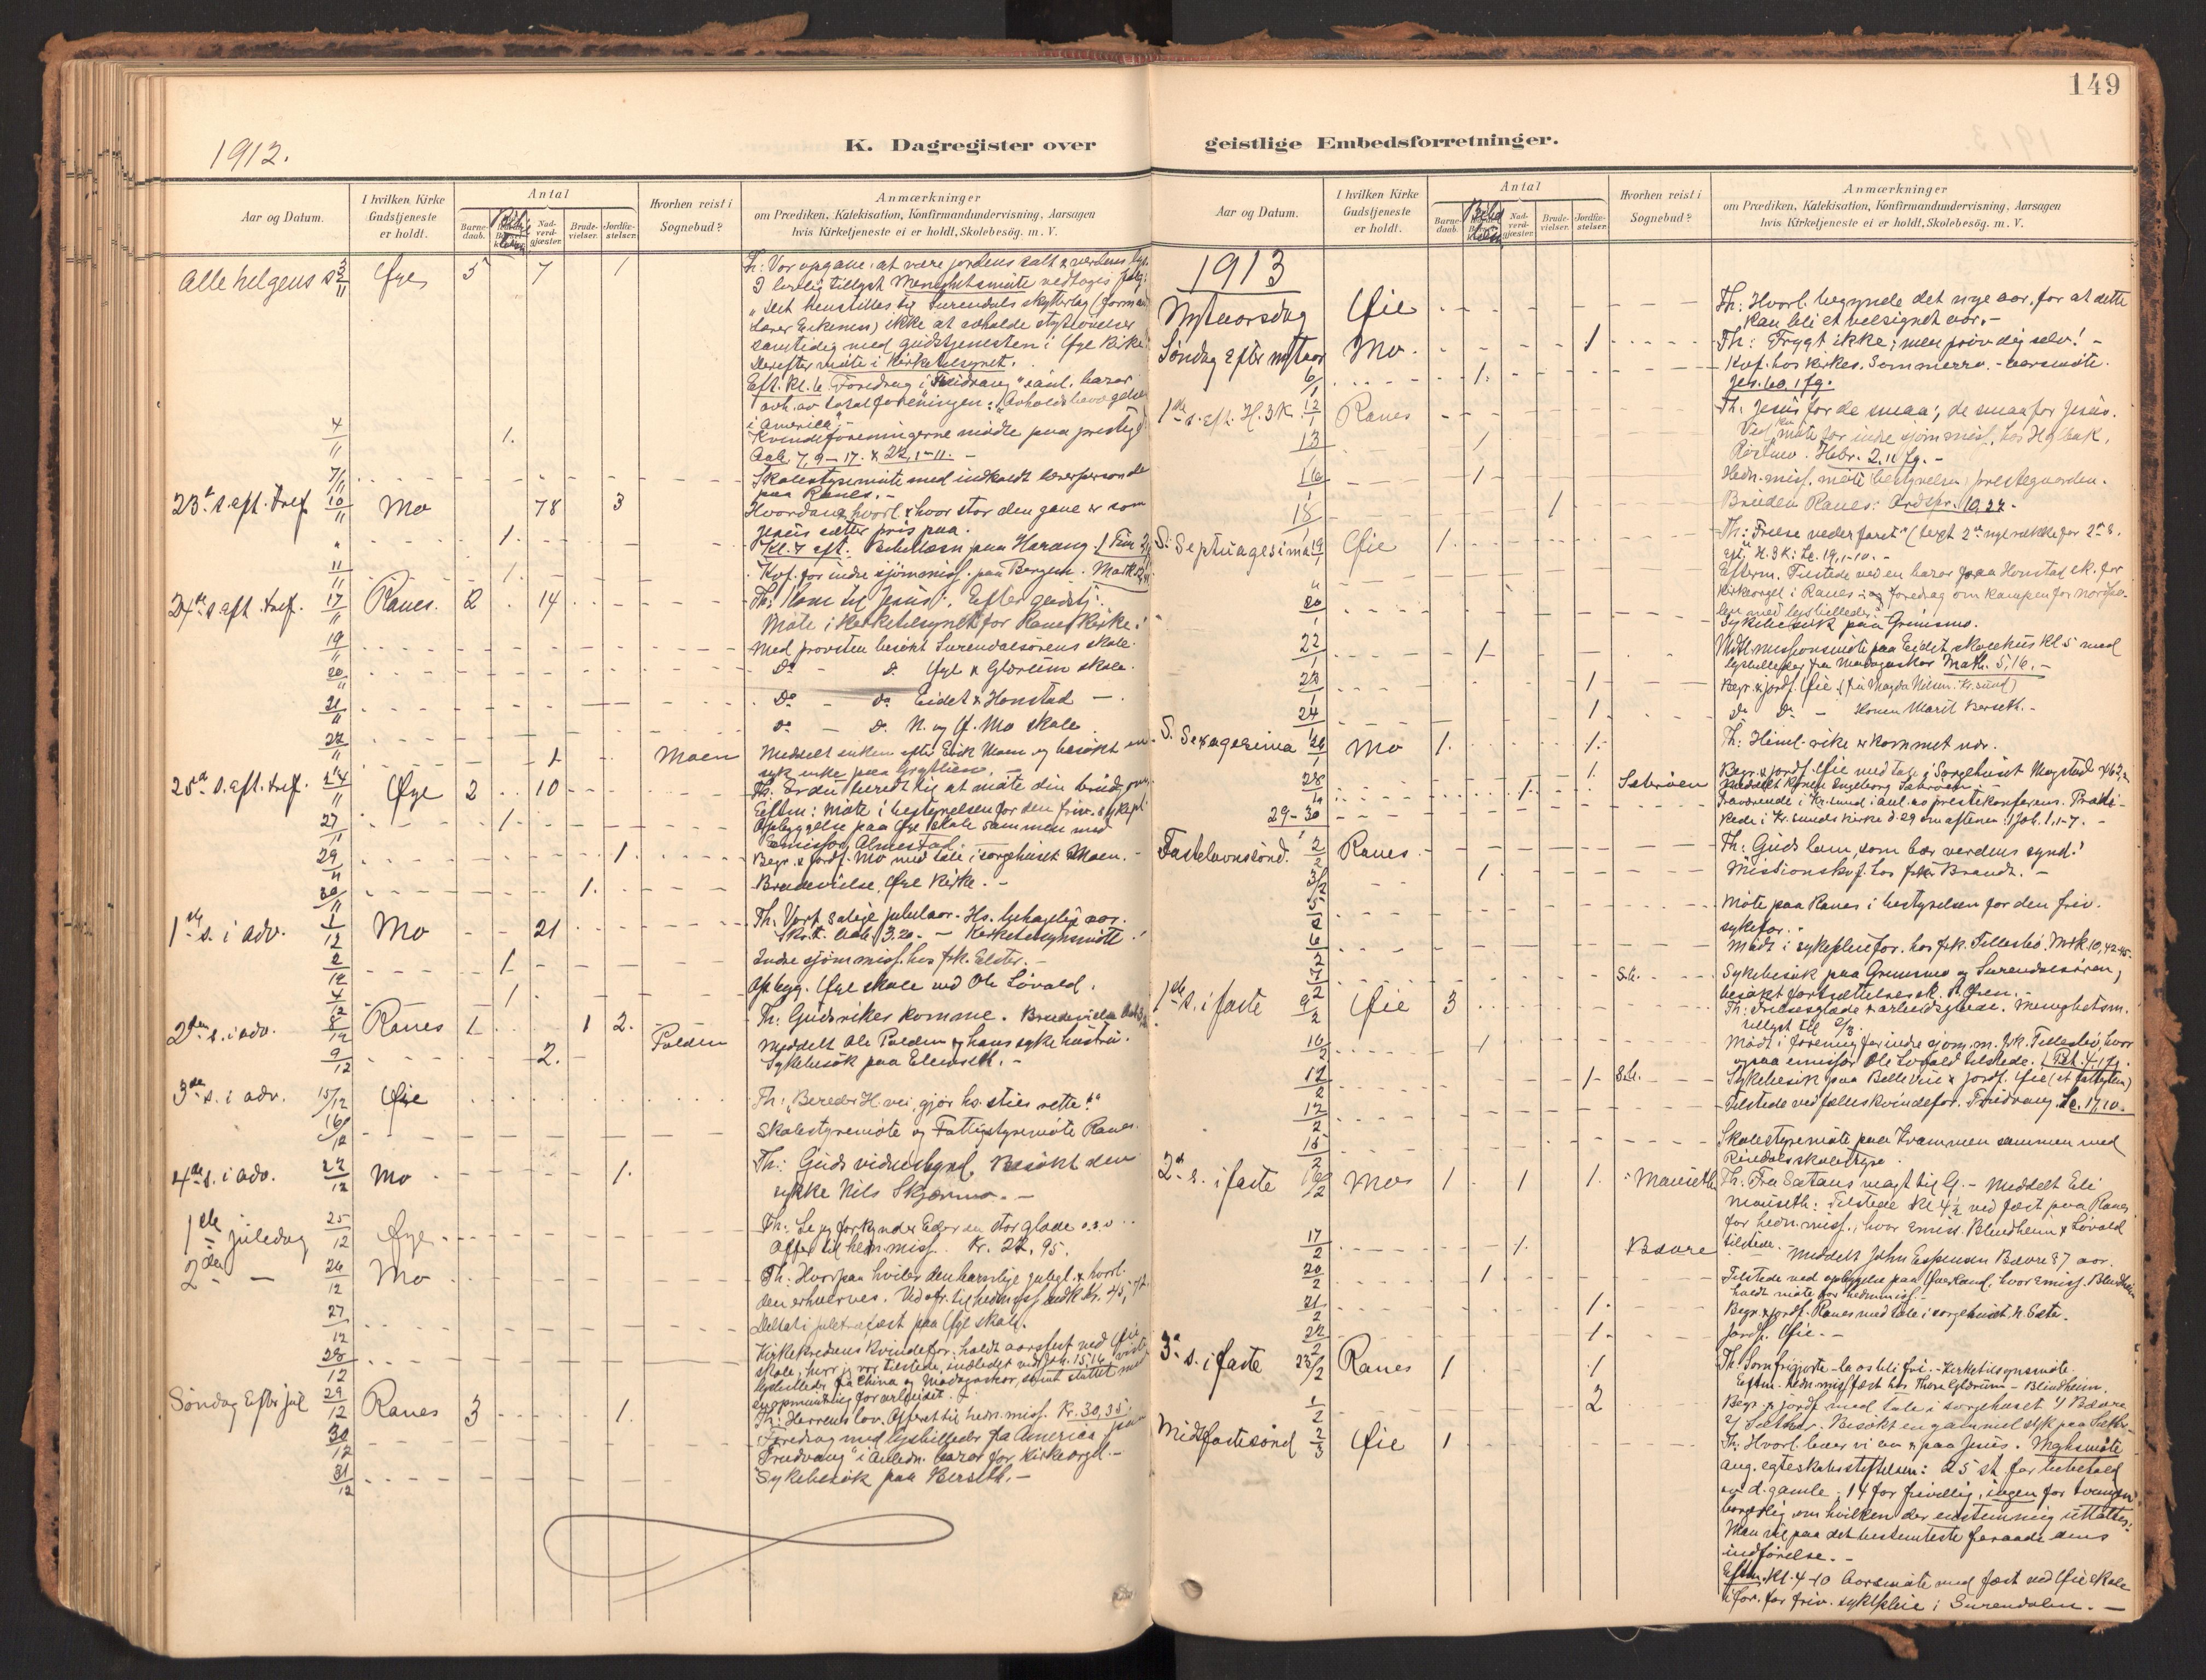 149
1912.
K. Dagregister over
geistlige Embedsforretninger.
Aar og Datum.
I hvilken Kirke Gudstjeneste er holdt.
Antal
Barne-daab.
Nad-verd-gjæster.
Brude-vielser.
Jordfæ-stelser.
Hvorhen reist i Sognebud?
Anmærkninger
om Prædiken, Katekisation, Konfirmandundervisning, Aarsagen
hvis Kirketjeneste ei er holdt, Skolebesøg. m. V.
Alle helgens s 3/11 Øye 5 7 1 Th: Vor opgave: at være jordens salt & verdens lys.
"Det henstilles til Surendals skytterlag (formand
samtidig med gudstjenesten i Øye kirke"
Derefter møte i kirketilsynet.
i America".
4/11 1. Kvindeforeningerne møtte paa
7, 9-17. & 22, 1-11. -
7/11 Skolestyremøte med indkaldt lærerpersonale
paa Ranes. -
23de s. eft. tref. 10/11 Mo 78 3 Hvordan, hvorl. & hvor stor den gave er som
Jesus sætter pris paa.
" 1. Kl. 7 eft. Bibellæsn. paa Harang. 1 Tim 2
11/11 1. Kvf. for indre sjømmiss. paa Bergem. Mark 12,41
24de s. eft. tref. 17/11 Ranes. 2 14 Th: Kom til Jesus! Efter gudstj.
Møte i kirketilsynet for Ranes kirke.
19/11 Med provsten besøkt Surendalsørens skole.
20/11 Do - Do Øye & Glærum skole.
21/11 Do - Do Eidet & Honstad -
22/11 Do - Do N. og Ø. Mo skole
1 Moen Meddelt enken efter Erik Moen og besøkt en
syk enke paa
25de s. eft. tref. 24/11 Øye 2 10 Th: Er du beredt til at møte din brudgom.
Eftm: Møte i bestyrelsen for den friv. sykepl.
27/11 1 Opbyggelse paa Øye skole sammen med
emissær Almestad.
29/11 1. Begr. & jordf. Mo med tale i sørgehuset Moen. -
30/11 1. Brudevielse, Øye kirke. -
1ste s. i adv. 1/12 Mo 21 Th. Vort salige jubelaar. Hs. behagelig aar.
3.20. - Kirketilsynsmøte.
2/12 1 Indre sjømmiss. hos frk. Elster. -
4/12 1. Opbyg. Øye skole ved Ole Løvald.
2den s. i adv. 8/12 Ranes 1 1 2. Th. Guds rikes komme. Brudevielse
9/12 2. Polden Meddelt Ole Polden og hans syke hustru.
Sykebesøk paa
3de s. i adv. 15/12 Øye Th: "Bereder H. vei, gjør hs. stier rette!"
16/12 Skolestyremøte og Fattigstyremøte Ranes.
4de s. i adv. 22/12 Mo 1. Th: Guds vidnesbyrd. Besøkt den
syke Nils Skjermo. -
1ste juledag 25/12 Øye Th: Se jeg forkynder Eder en stor glæde o.s.v.
Offer til hedn.miss. Kr. 22,95.
2den - 26/12 Mo Th: Hvorpaa hviler den barnslige juleglæde & hvorl.
den erhverves. 
27/12 Deltat i juletræfest paa Øye skole.
28/12 Kirkekredsens kvindefor. holdt aarsfest ved Øie
skole, hvor jeg var tilstede, indledet ved Joh. 15,16
lysbilleder fra China og Madagaskar, samt sluttet med
en opmuntring for arbeidet.
Søndag efter jul 29/12 Ranes 3 1. Th: Herrens lov. Offeret til hedn.miss. Kr. 30,35.
30/12 Foredrag med lysbilleder fra America paa
"Trudvang" i anledn. bazar for kirkeorgel. -
31/12 Sykebesøk paa Berseth. -
Aar og Datum.
I hvilken Kirke Gudstjeneste er holdt.
Antal
Barne-daab.
Nad-verd-gjæster.
Brude-vielser.
Jordfæ-stelser.
Hvorhen reist i Sognebud?
Anmærkninger
om Prædiken, Katekisation, Konfirmandundervisning, Aarsagen
hvis Kirketjeneste ei er holdt, Skolebesøg. m. V.
1913
Nytaarsdag Øie Th: Hvorl. begynde det nye aar, for at dette
kan bli et velsignet aar. -
Søndag efter nytaar Mo 1 Th: Frygt ikke; men prøv dig selv! -
6/1 1. Kvf. hos kirkes. Sommerro. - aarsmøte.
Jes. 60, 1 fg.
1ste s. eft. H. 3 K. 12/1 Ranes Th: Jesus for de smaa; de smaa for Jesus.
13/1 1 Ved møte for indre sjømmiss. hos Holbæk,
Hebr. 2,11 fg. -
16/1 1 Hedn.miss. møte bestyrelsen prestegaarden.
18/1 1 Bruden Ranes: Ordspr. 10,22.
S. Septuagesima 19/1 Øie 1. Th: Frelse vederfaret" (Text 2den nye række for 2den S.
eft. H. 3 K: Lc. 19,1-10. -
" Efterm. Tilstede ved en bazar paa Honstad sk. for
kirkeorgel i Ranes - og foredrag om kampen for
med lysbilleder."
20/1 Sykebesøk paa Grimsmo.
22/1 1 missionsmøte paa Eidet skolehus kl 5 med
lysbilleder fra Madagaskar Math. 5,16. -
23/1 1 Begr. & jordf. Øie (fru Magda Nilsen, Kr.sund)
24/1 1. Do Do - Konen Marit Berseth. -
S. Sexagesima 26/1 Mo 1. 1. Th: Himl. rike er kommet nær.
28/1 1. Begr. & jordf. Øie med tale i sørgehuset Mogstad
1. Sæterøien Meddelt konen Ingeborg Sæterøien. -
29-30 Fraværende i Kr.sund i anl. av prestekonferens. Prædi-
kede i Kr.sunds kirke d. 29 om aftenen: 1 Joh. 1,1-7. -
Fastelavnssønd. 2/2 Ranes Th: Guds lam, som bær verdens synd!
3/2 1 Missionskvf. hos frk. Brandt. -
5/2 Møte paa Ranes i bestyrelsen for den friv.
sykefor. -
6/2 Møtt i sykepleiefor. hos frk. Tellesbø. Mrk. 10,42-45.
7/2 Sb. Sykebesøk paa Grimsmo og Surendalsøren,
besøkt fortsættelsessk.
1ste s. i faste 9/2 Øie 3 Th: Frelsesglæde & arbeidsglæde. Menighetsm.
tillyst til 2/3.
10/2 1 Møtt i forening for indre sjøm.m. frk. Tellesbø, hvor
ogsaa emissær Ole Løvald tilstede. 1 Pet. 4,1 fg.
12/2 1 Sb. Sykebesøk paa Bellevue & jordf. Øie (et fattiglem)
12/2 Tilstede ved fælles kvindefor. Trudvang. Lc. 17,10.
15/2 Skolestyremøte paa Kvammen sammen med
Rindals skolestyre.
2den s. i faste 16/2 Mo 1 1 1. Mauseth Th: Fra Satans magt til G. - Meddelt Eli
Mauseth: Tilstede kl 4½ ved fest paa Ranes
for hedn.miss., hvor emiss. Blindheim & Løvald
tilstede.
17/2 1. Bævre Meddelt John Espensen Bævre 87 aar.
20/2 1 Tilstede ved opbyggelse paa Øverland, hvor emiss. Blindheim
holdt møte for hedn.miss. -
21/2 1. Begr. & jordf. Ranes med tale i sørgehuset
22/2 1. Jordf. Øie. -
3de s. i faste 23/2 Ranes 1 1 Th. Som frigjorte - la os bli fri. - Kirketilsynsmøte.
Eftm. hedn.missfest hos Thore Glærum - Blindheim.
1/2 2 Begr. & jordf. med tale i sørgehuset 1/ Bævre
2/ Besøkt en gammel syk paa
Midfastesønd 2/3 Øie 1 Th: Hvorl. lever vi av & paa Jesus. Mghsmøte
ang. egteskabsstiftelsen: 25 st. for bibehold
av d. gamle. 14 for frivillig, ingen for tvungen
borgerlig, om hvilken der enstemmig uttaltes:
Man vil paa det bestemteste fraraade dens
indførelse. -
Eftm. kl. 4-10 Aarsmøte med fest ved Øie skole
i for. for friv. sykepleie i Surendalen. -